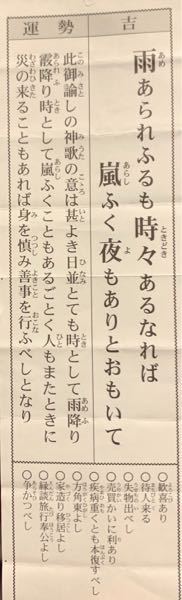 運勢
吉
雨あられふるも時々あるなれば
嵐ふく夜もありとおもいて
此御諭しの神歌の意は甚よき日並とても時として雨降り
霰降り時として嵐ふくこともあるごとく人もまたときに
災の来ることもあれば身を慎み善事を行ふべしとなり
○歓喜あり
○待人来る
○失物出べし
○売買かいに利あり
○疾病重くとも本復すべし
○方角東よし
○家造り移居よし
○縁談旅行奉公よし
○争かつべし